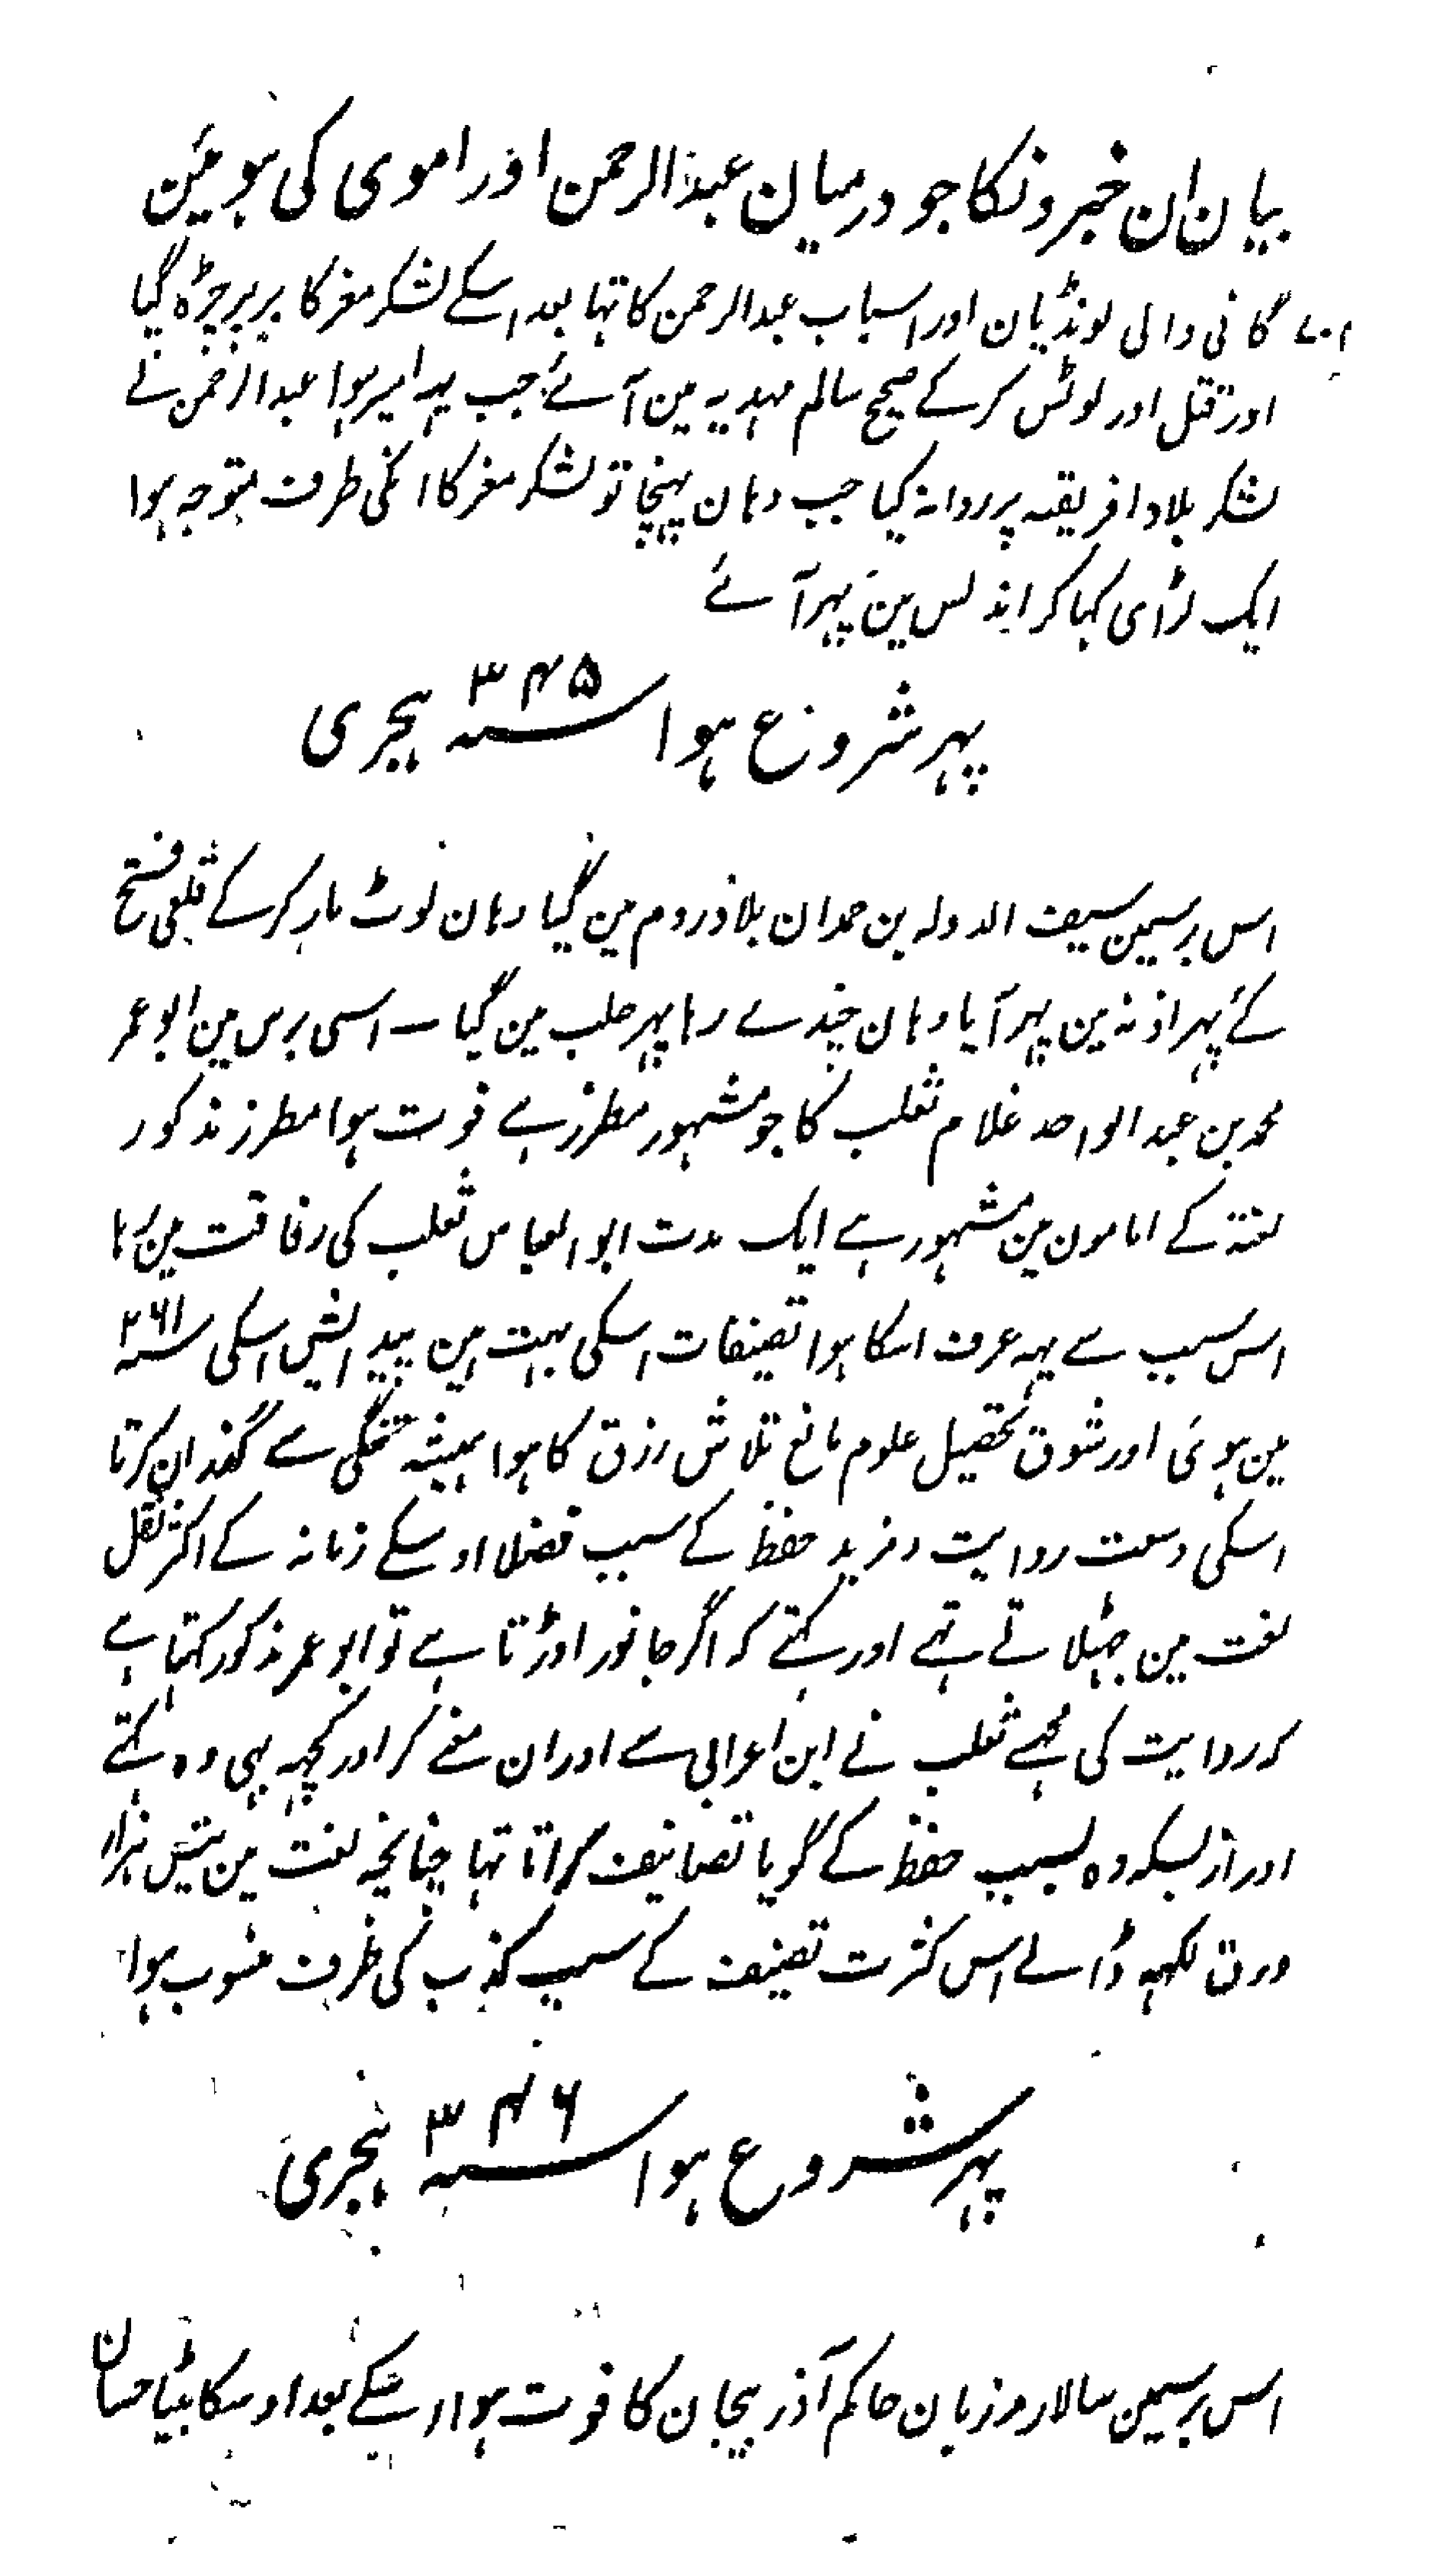 بیان ان خبرونکا جو درمیان عبدالرحمن اور اموی کی ہوئین
گانی والی لونڈیان اور اسباب عبدالرحمن کا تہا بعد اسکے لشکر مغرکا بربر چڑہ گیا
اور قتل اور لوٹس کرکے صحیح سالم مہدیہ مین آئے جب یہ امیر ہوا عبدالرحمن نے
لشکر بلاد افریقیہ پر روانہ کیا جب وہان پہنچا تو لشکر مغرکا انکی طرف متوجہ ہوا
ایک لڑای کہا کر اندلس مین پہر آئے
پہر شروع ہوا سنہ ۳۴۵ ہجری
اس برسمین سیف الدولہ بن حمدان بلاد روم مین گیا وہان لوٹ مار کرکے قلعی فتح
کئے پہر اذنہ مین پہر آیا وہان چندے رہا پہر حلب مین گیا ۔ اسی برس مین ابو عمر
محمد بن عبد الواحد غلام ثعلب کا جو مشہور مطرز ہے فوت ہوا مطرز مذکور
لغتہ کے امامون مین مشہور ہے ایک مدت ابو العباس ثعلب کی رفاقت مین رہا
اس سبب سے یہہ عرف اسکا ہوا تصنیفات اسکی بہت ہین پیدایش اسکی سنہ ۲۶۱
مین ہوئی اور شوق تحصیل علوم مانع تلاش رزق کا ہوا ہمیشہ تنگی سے گذران کرتا
اسکی وسعت روایت و مزید حفظ کے سبب فضلا اوسکے زمانہ کے اکثر نقل
لغت مین جہٹلاتے تہے اور کہتے کہ اگر جانور اوڑتا ہے تو ابو عمر مذکور کہتا ہے
کہ روایت کی مجہسے ثعلب نے ابن اعرابی سے اور ان معنے کر اور کچہہ بہی وہ کہتے
اور ازبسکہ وہ بسبب حفظ کے گویا تصانیف کراتا تہا چنانچہ لغت مین تیس ہزار
ورق لکہہ ڈالے اس کثرت تصنیف کے سبب کذب کی طرف منسوب ہوا
پہر شروع ہوا سنہ ۳۴۶ ہجری
اس برسمین سالار مرزبان حاکم آذربیجان کا فوت ہوا اسکے بعد اوسکا بیٹا حسان